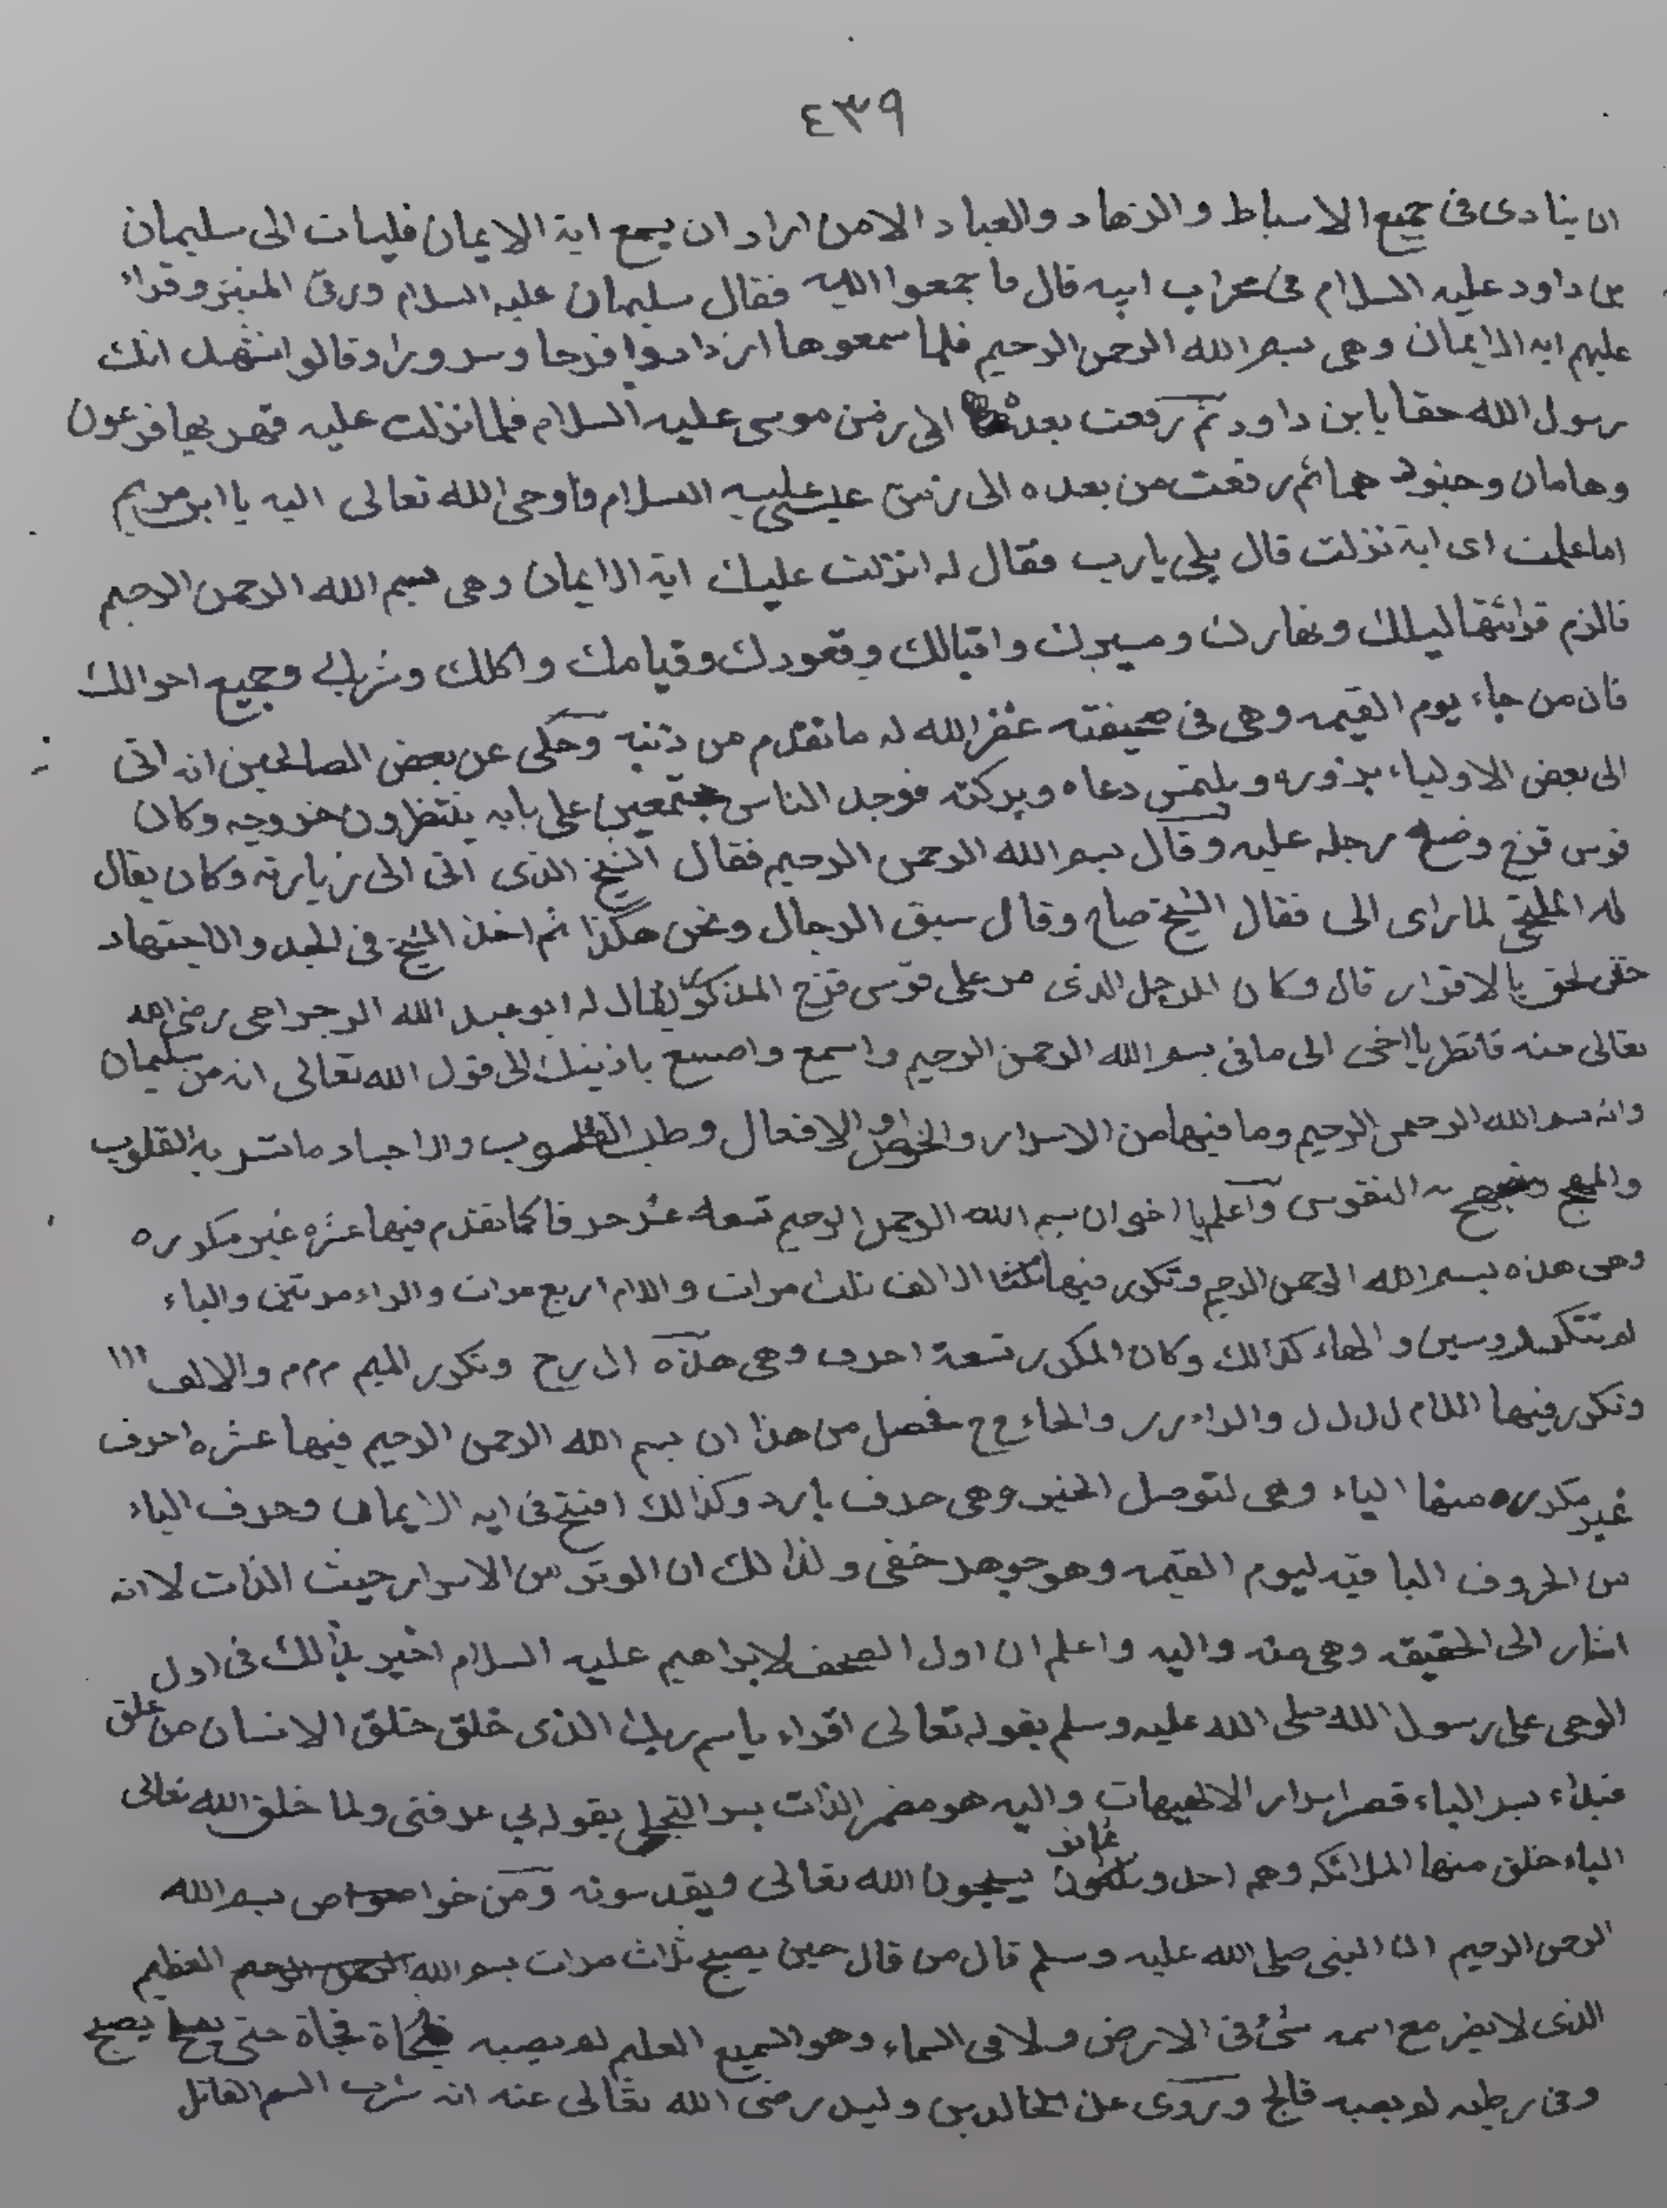 ٤٣٩
ان ينادى فى جميع الاسباط والزهاد والعباد الامن اراد ان يسمع اية الايمان فليات الى سليمان
بن داود عليه السلام فى محراب ابيه قال فاجمعوا اليه فقال سليمان عليه السلام ورقى المنبر وقراء
عليهم ايه الايمان وهى بسم الله الرحمن الرحيم فلما سمعوها ازدادوا فرحا وسرورا وقالوا نشهد انك
رسول الله حقا يا بن داود ثم رفعت بعده الى زمن موسى عليه السلام فلما نزلت عليه قهر بها فرعون
وهامان وجنودهما ثم رفعت من بعده الى زمن عيسى عليه السلام فاوحى الله تعالى اليه يا ابن مريم
اما علمت اى اية نزلت قال بلى يارب فقال له انزلت عليك اية الايمان وهى بسم الله الرحمن الرحيم
فالزم قرائتها ليلك ونهارك ومسيرك واقبالك وقعودك وقيامك واكلك وشربك وجميع احوالك
فان من جاء يوم القيمه وهى فى صحيفته غفر الله له ما تقدم من ذنبه وحكى عن بعض الصالحين انه اتى
الى بعض الاولياء يزوره ويلتمس دعاه وبركته فوجد الناس مجتمعين على بابه ينتظرون خروجه وكان
قوس قزح وضع رجله عليه وقال بسم الله الرحمن الرحيم فقال الشيخ الذى اتى الى زيارته وكان يقال
له لما راى الى فقال الشيخ صاح وقال سبق الرجال ونحن هكذا ثم اخذ الشيخ فى الجد والاجتهاد
حتى لحق بالاقرار قال وكان الرجل الذى مر على قوس قزح المذكور يقال له ابو عبد الله رضى الله
تعالى عنه فانظر يا اخى الى ما فى بسم الله الرحمن الرحيم واسمع واصسع باذنيك الى قول الله تعالى انه من سليمان
وانه بسم الله الرحمن الرحيم وما فيها من الاسرار والخواص والافعال وطب القلوب والاجساد ما تسر به القلوب
والمهج به النفوس واعلم يا اخوان بسم الله الرحمن الرحيم تسعة عشر حرفا كما تقدم فيها عشره غير مكرره
وهى هذه بسم الله الرحمن الرحيم وتكرر فيها الالف ثلث مرات واللام اربع مرات والراء مرتين والباء
لم تتكرر وسين والهاء كذالك وكان المكرر تسعة احرف وهى هذه ال رح وتكرر الميم م م م والالف ا ا ا
وتكرر فيها اللام ل ل ل ل والراء ر ر والحاء ح ح فحصل من هذا ان بسم الله الرحمن الرحيم فيها عشره احرف
غير مكرره منها الباء وهى لتوصل الخير وهى حرف بارد وكذالك افتتح فى ايه الايمان وحرف الباء
من الحروف الباقيه ليوم القيمه وهو جوهر خفى ولذالك ان الوتر من الاسرار حيث الذات لا انه
اشار الى الحقيقه وهى منه واليه واعلم ان اول الصحف لابراهيم عليه السلام اخبر بذالك فى اول
الوحى على رسول الله صلى الله عليه وسلم بقوله تعالى اقراء باسم ربك الذى خلق خلق الانسان من علق
فبداء بسر الباء قصر اسرار الالهيهات واليه هو مضمر الذات بسر التجلى بقوله بى عرفتنى ولما خلق الله تعالى
الباء خلق منها الملائكه وهم احد وثمانون يسبحون الله تعالى ويقدسونه ومن خواص بسم الله
الرحمن الرحيم ان النبى صلى الله عليه وسلم قال من قال حين يصبح ثلاث مرات بسم الله الرحمن الرحيم العظيم
الذى لا يضر مع اسمه شئ فى الارض ولا فى السماء وهو السميع العليم لم يصبه فجاة حتى يصبح
وفى لم يصبه فالج وروى عن خالد بن وليد رضى الله تعالى عنه انه شرب السم القاتل